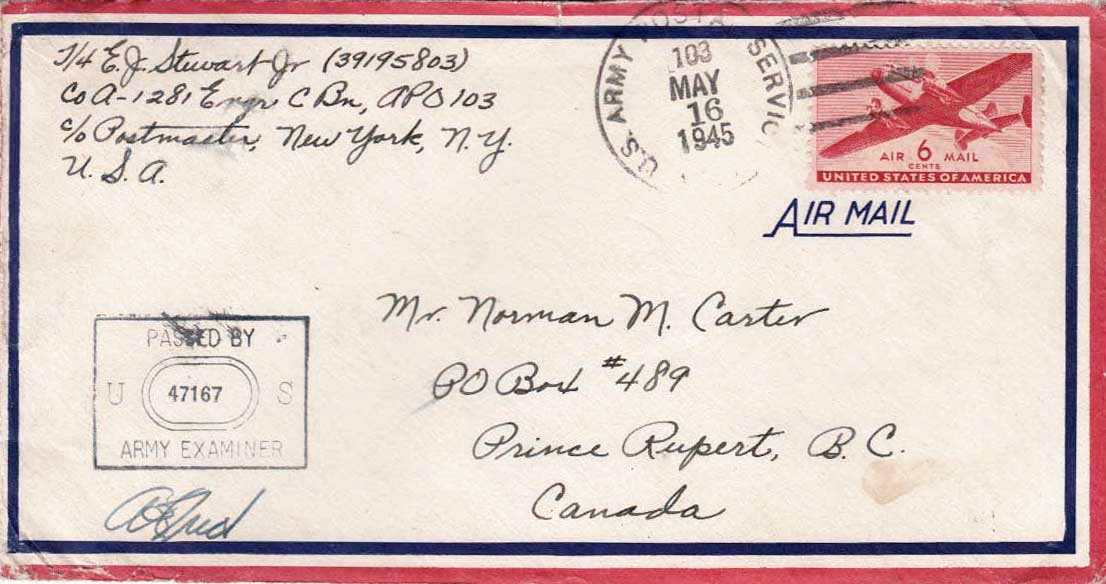 T/4 E.J. Stewart Jr (39195803)
Co A-1281 Engr C Bn, APO 103
c/o Postmaster, New York, N.Y.
U.S.A.
U.S. ARMY POSTAL SERVIC
103
MAY
16
1945
AIR 6 MAIL
CENTS
UNITED STATES OF AMERICA
AIR MAIL
Mr. Norman M. Carter
PO Box #489
Prince Rupert, B.C.
Canada
PASSED BY
U 47167 S
ARMY EXAMINER